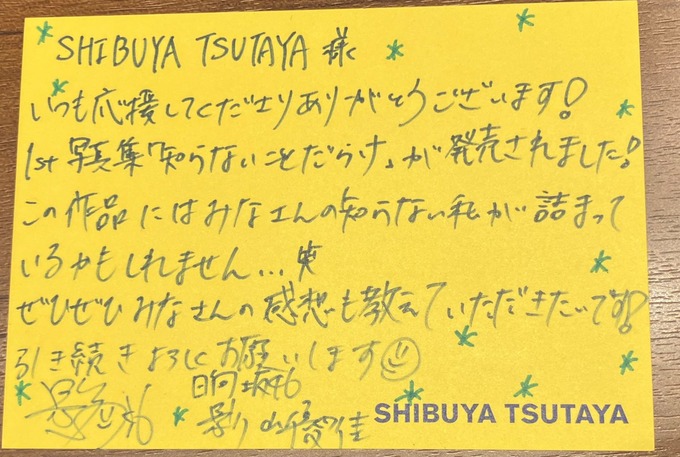 SHIBUYA TSUTAYA 様
いつも応援してくださりありがとうございます!
1st写真集「知らないことだらけ」が発売されました!
この作品にはみなさんの知らない私が詰まって
いるかもしれません...笑
ぜひぜひみなさんの感想も教えていただきたいです!
引き続きよろしくお願いします
日向坂46
影山優佳
SHIBUYA TSUTAYA